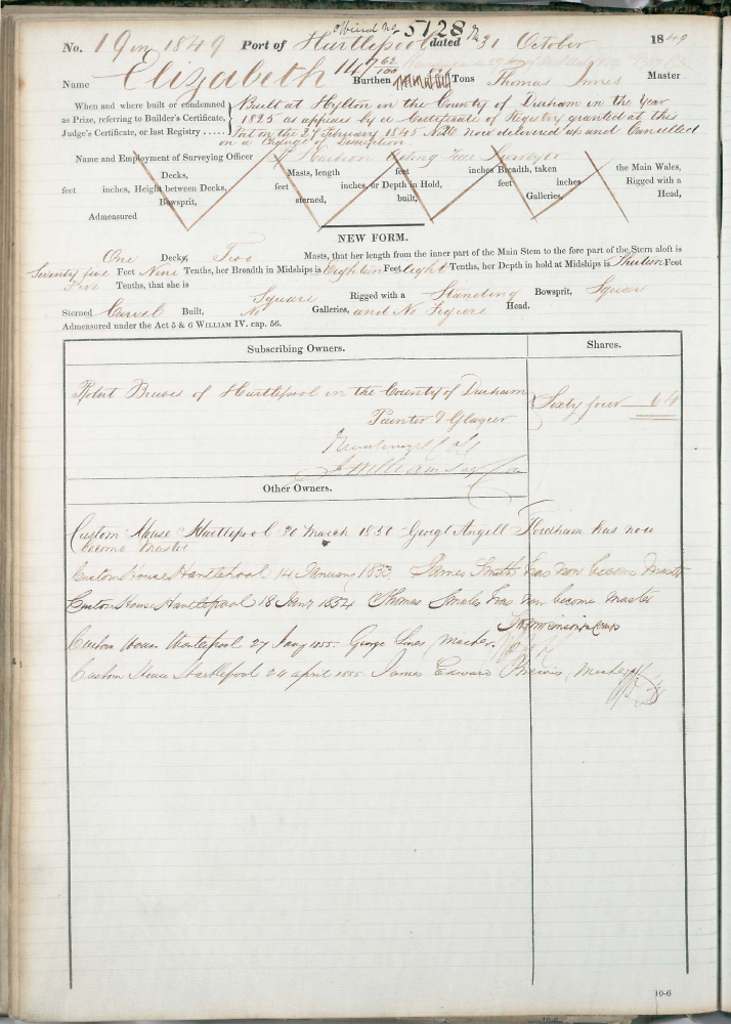 Official No. 5128
No. 19 in 1849 Port of Hartlepool dated 31 October 1849
Name Elizabeth 147 62/100 Burthen Tons Thomas Innes Master
When and where built or condemned as Prize, referring to Builder's Certificate, Judge's Certificate, or last Registry
Built at Hylton in the County of Durham in the Year
1825 as appears by a Certificate of Registry granted at this
Port on the 27 February 1845 No 26 now delivered up and Cancelled
on a Change of
Name and Employment of Surveying Officer Acting Tide Surveyor
Decks, Masts, length feet inches Breadth, taken the Main Wales,
feet inches, Height between Decks, feet inches, or Depth in Hold, feet inches Rigged with a
Bowsprit, sterned, built, Galleries, Head,
Admeasured
NEW FORM.
One Decks, Two Masts, that her length from the inner part of the Main Stem to the fore part of the Stern aloft is
Seventy five Feet Nine Tenths, her Breadth in Midships is Eighteen Feet Eight Tenths, her Depth in hold at Midships is Thirteen Feet
Five Tenths, that she is Square Rigged with a Standing Bowsprit, Square
Sterned Carvel Built, No Galleries, and No Figure Head.
Admeasured under the Act 5 & 6 WILLIAM IV. cap. 56.
Subscribing Owners.
Shares.
Robert of Hartlepool in the County of Durham
Painter & Glazier
Sixty four 64
Other Owners.
Custom House Hartlepool 20 March 1850 George Angell has now
become Master
Custom House Hartlepool 14 January 1853 James Smith has now become Master
Custom House Hartlepool 18 Jany 1854 Thomas Smales has now become Master
Custom House Hartlepool 27 Jany 1855. George Master.
Custom House Hartlepool 24 April 1855 James Edward Master
10-6